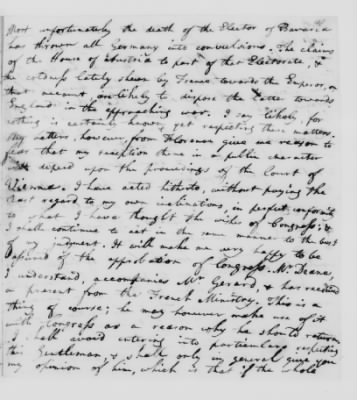 Most unfortunately the death of the Elector of Bavaria
has thrown all Germany into convulsions. The claims
of the House of Austria to part of that Electorate, &
the coldness lately shewn by France towards the Emperor, on
that account, are likely to dispose the latter towards
England in the approaching war. I say likely, for
nothing is certainly known yet respecting these matters.
My letters, however, from Florence give me reason to
fear that my reception there in a public character
will depend upon the proceedings of the Court of
Vienna. I have acted hitherto, without paying the
least regard to my own inclinations, in perfect conformity
to what I have thought the wish of Congress; &
I shall continue to act in the same manner to the best
of my judgment. It will make me very happy to be
assured of the approbation of Congress. Mr Deane,
I understand, accompanies Mr Gerard, & has received
a present from the French Ministry. This is a
thing of course; he may however make use of it
with Congress as a reason why he should return.
I shall avoid entering into particulars respecting
this Gentleman, & shall only in general give you
my opinion of him, which is that if the whole